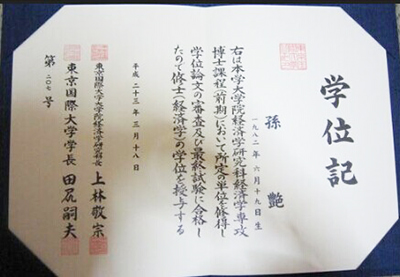 学位記
孫 艶
一九八二年六月十九日生
右は本学大学院経済学研究科経済学専攻
博士課程(前期)において所定の単位を修得し
学位論文の審査及び最終試験に合格し
たので修士(経済学)の学位を授与する
平成二十三年三月十八日
東京国際大学大学院経済学研究科長 上林敬宗
東京国際大学学長 田尻嗣夫
第二〇七号